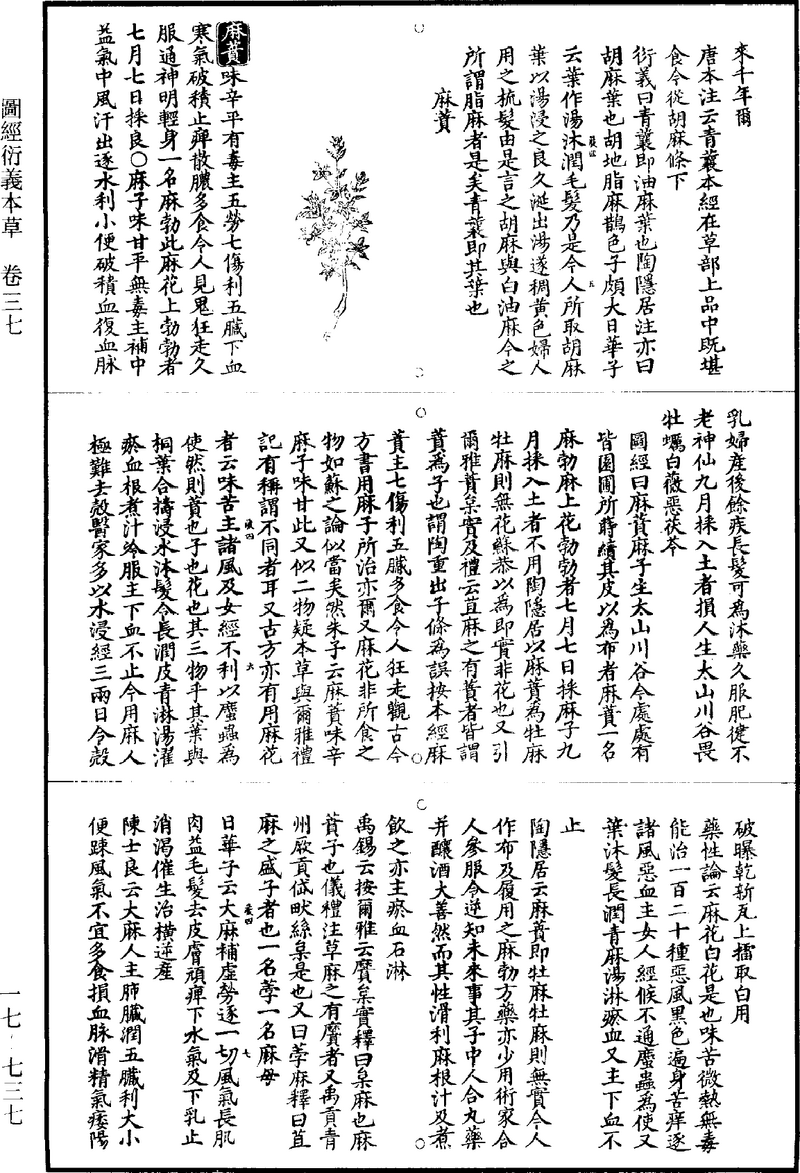 來千年爾
唐本注云青蘘本經在草部上品中既堪
食今從胡麻條下
衍義曰青蘘即油麻葉也陶隱居注亦曰
胡麻葉也胡地脂麻鵲色子頗大日華子
云葉作湯沐潤毛髮乃是今人所取胡麻
葉以湯浸之良久涎出湯遂稠黃色婦人
用之梳髮由是言之胡麻與白油麻今之
所謂脂麻者是矣青蘘即其葉也
麻蕡
麻蕡味辛平有毒主五勞七傷利五臟下血
寒氣破積止痹散膿多食令人見鬼狂走久
服通神明輕身一名麻勃此麻花上勃勃者
七月七日採良○麻子味甘平無毒主補中
益氣中風汗出逐水利小便破積血復血脉
乳婦產後餘疾長髮可為沐藥久服肥健不
老神仙九月採入土者損人生太山川谷畏
牡蠣白薇惡茯苓
圖經曰麻蕡麻子生太山川谷今處處有
皆園圃所蒔績其皮以為布者麻蕡一名
麻勃麻上花勃勃者七月七日採麻子九
月採入土者不用陶隱居以麻蕡為牡麻
牡麻則無花蘇恭以為即實非花也又引
爾雅蕡枲實及禮云苴麻之有蕡者皆謂
蕡為子也謂陶重出子條為誤按本經麻
蕡主七傷利五臟多食令人狂走觀古今
方書用麻子所治亦爾又麻花非所食之
物如蘇之論似當矣然朱子云麻蕡味辛
麻子味甘此又似二物疑本草與爾雅禮
記有稱謂不同者耳又古方亦有用麻花
者云味苦主諸風及女經不利以䗪蟲為
使然則蕡也子也花也其三物乎其葉與
桐葉合擣浸水沐髮令長潤皮青淋湯濯
瘀血根煮汁冷服主下血不止今用麻人
極難去殼醫家多以水浸經三兩日令殼
破曝乾新瓦上擂取白用
藥性論云麻花白花是也味苦微熱無毒
能治一百二十種惡風黑色遍身苦痒逐
諸風惡血主女人經候不通䗪蟲為使又
葉沐髮長潤青麻湯淋瘀血又主下血不
止
陶隱居云麻蕡即牡麻牡麻則無實今人
作布及履用之麻勃方藥亦少用術家合
人參服令逆知未來事其子中人合丸藥
并釀酒大善然而其性滑利麻根汁及煮
飲之亦主瘀血石淋
禹錫云按爾雅云黂枲實釋曰枲麻也麻
蕡子也儀禮注草麻之有黂者又禹貢青
州厥貢岱畎絲枲是也又曰荸麻釋曰苴
麻之盛子者也一名荸一名麻母
日華子云大麻補虛勞逐一切風氣長肌
肉益毛髮去皮膚頑痹下水氣及下乳止
消渴催生治橫逆產
陳士良云大麻人主肺臟潤五臟利大小
便踈風氣不宜多食損血脉滑精氣痿陽
圖經衍義本草　卷三七
一七·七三七